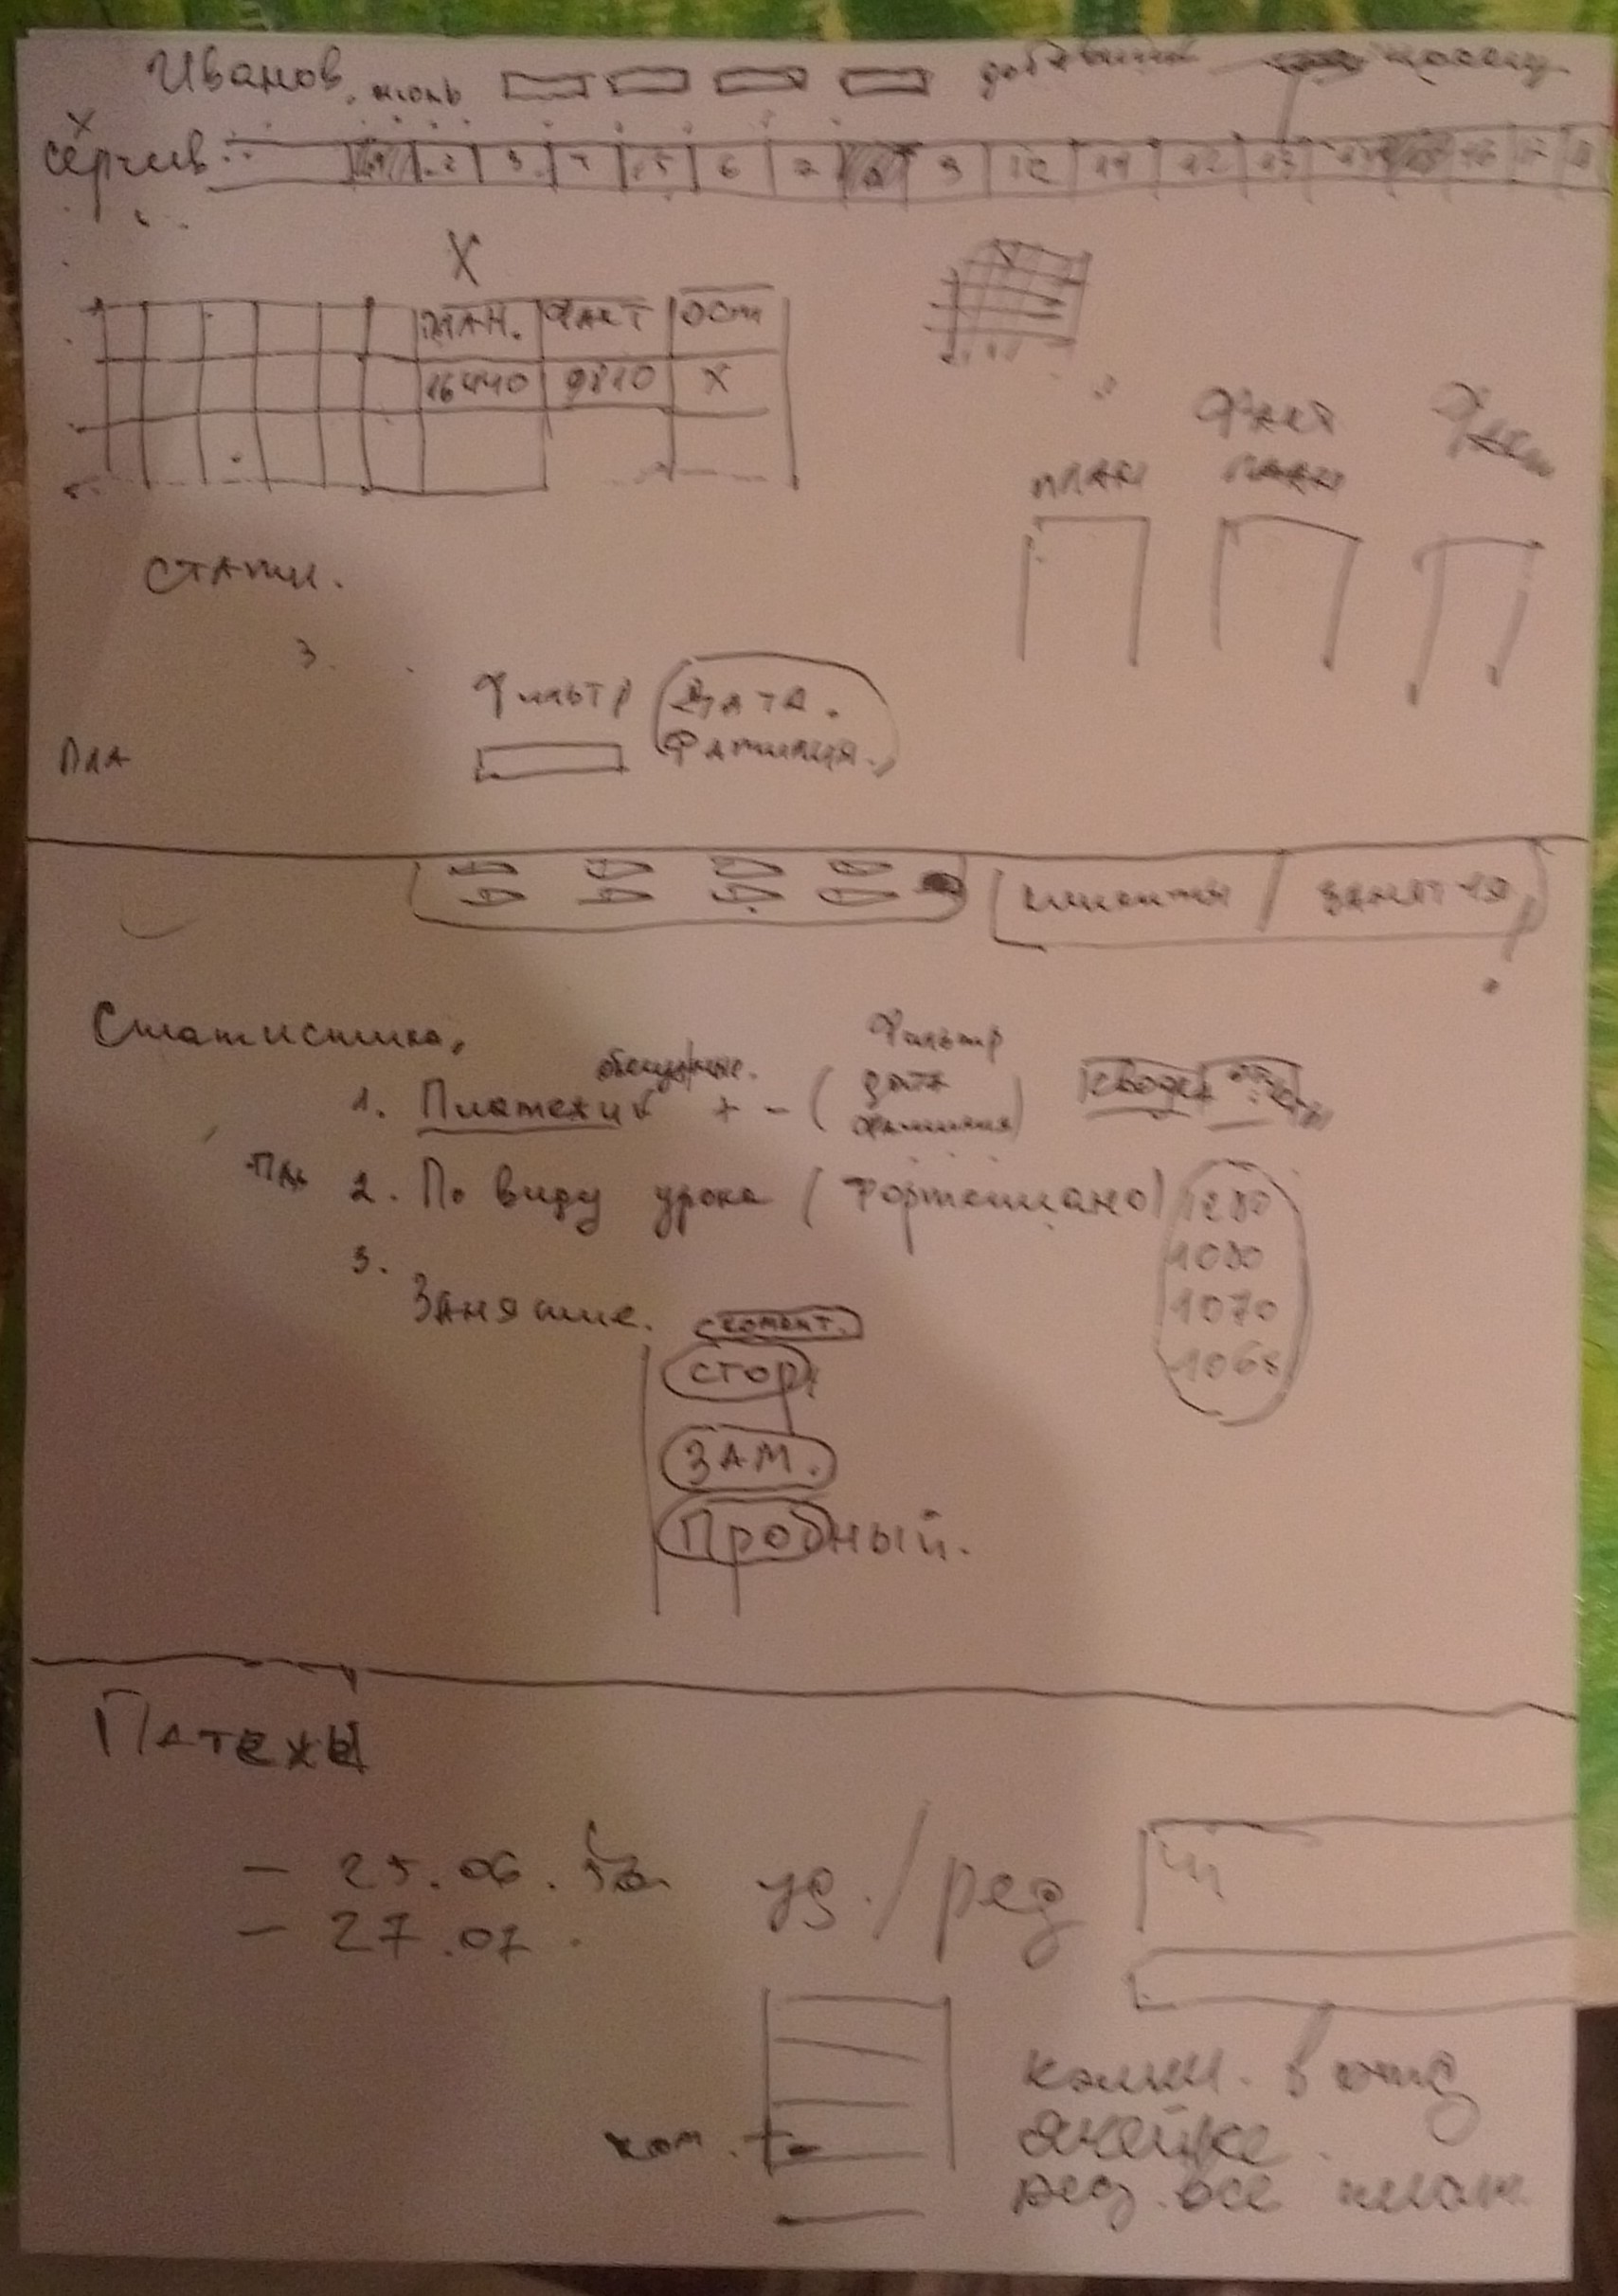 Иванов. июль
Сергив 2 3 4 5 6 7 8 9 10 11 12 13 14 15 16 17
X
ПЛАН. ФАКТ ОСТ
16440 9810 X
ФАКТ
ПЛАН ПЛАН
СТАТИ.
3.
Фильтр ДАТА.
Фамилия.
ПЛА
клиенты / занятия
Статистика,
Фильтр
1. Платежи + - ( дата
фамилия)
2. По виду урока (Фортепиано) 1280
1080
1070
1068
3.
Занятие.
СТОР
ЗАМ.
Пробный.
Платежы
- 25.06.
- 27.07.
уд. / ред
ком.
комм. в отд
ячейке.
ред. все